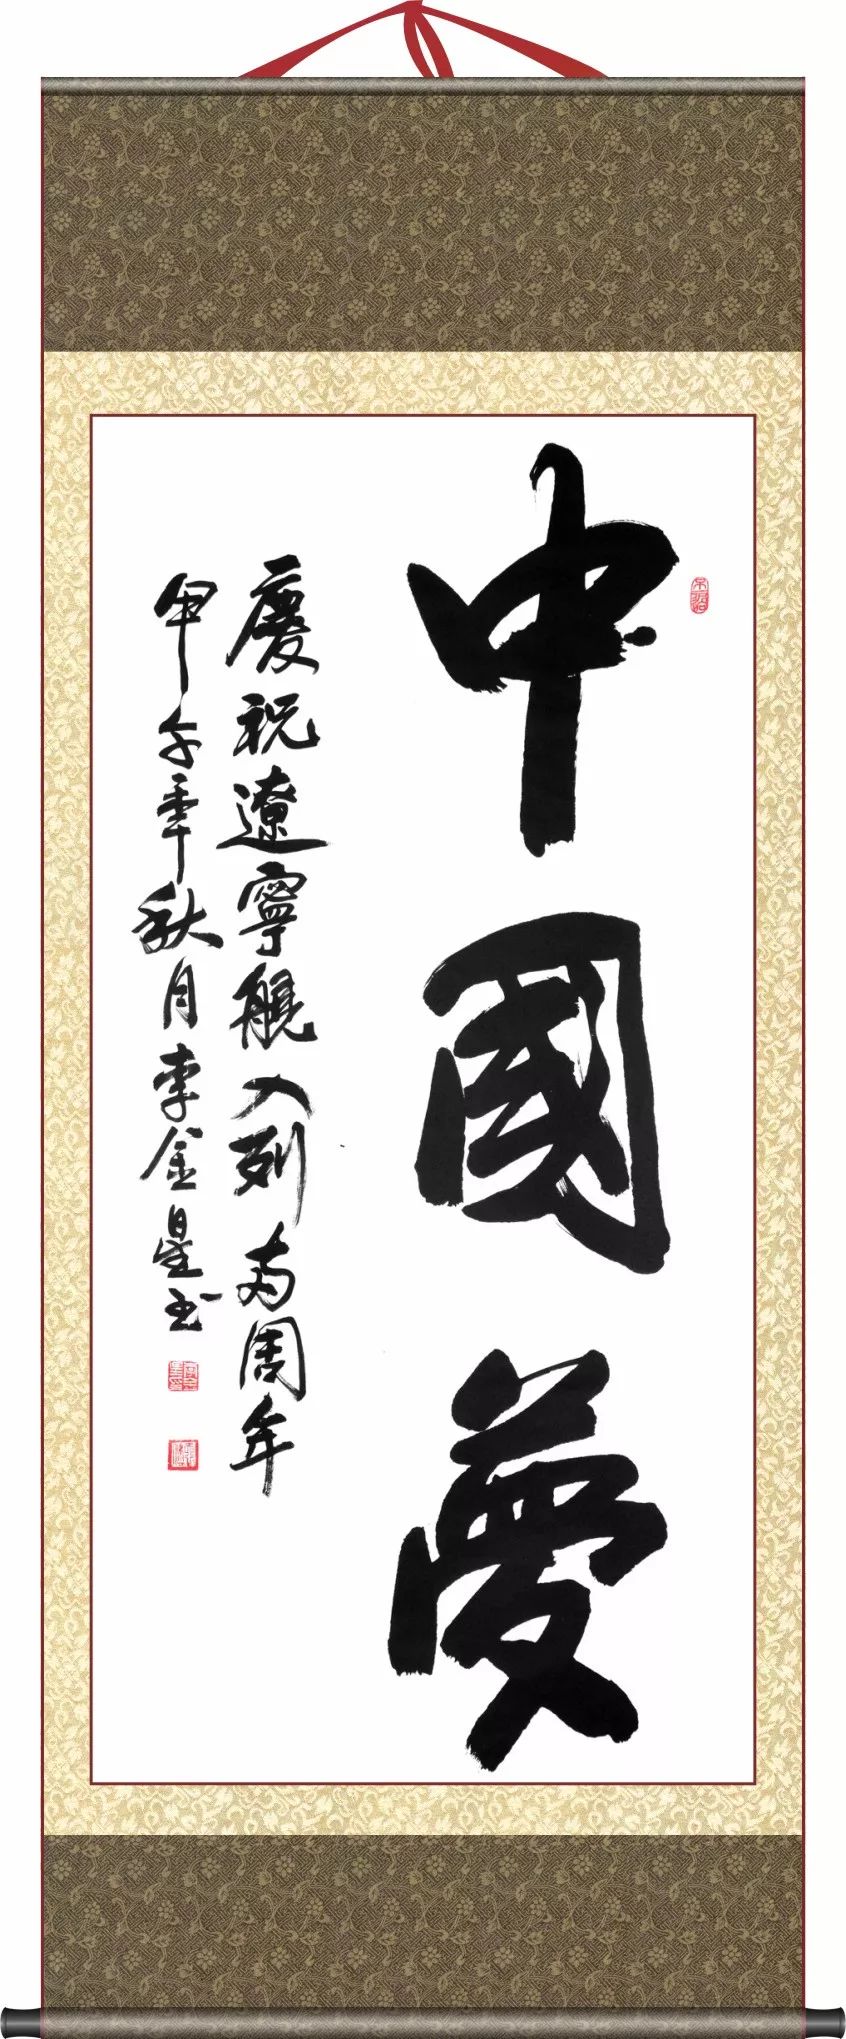 中國夢
慶祝遼寧艦入列两周年
甲午年秋月李金星书